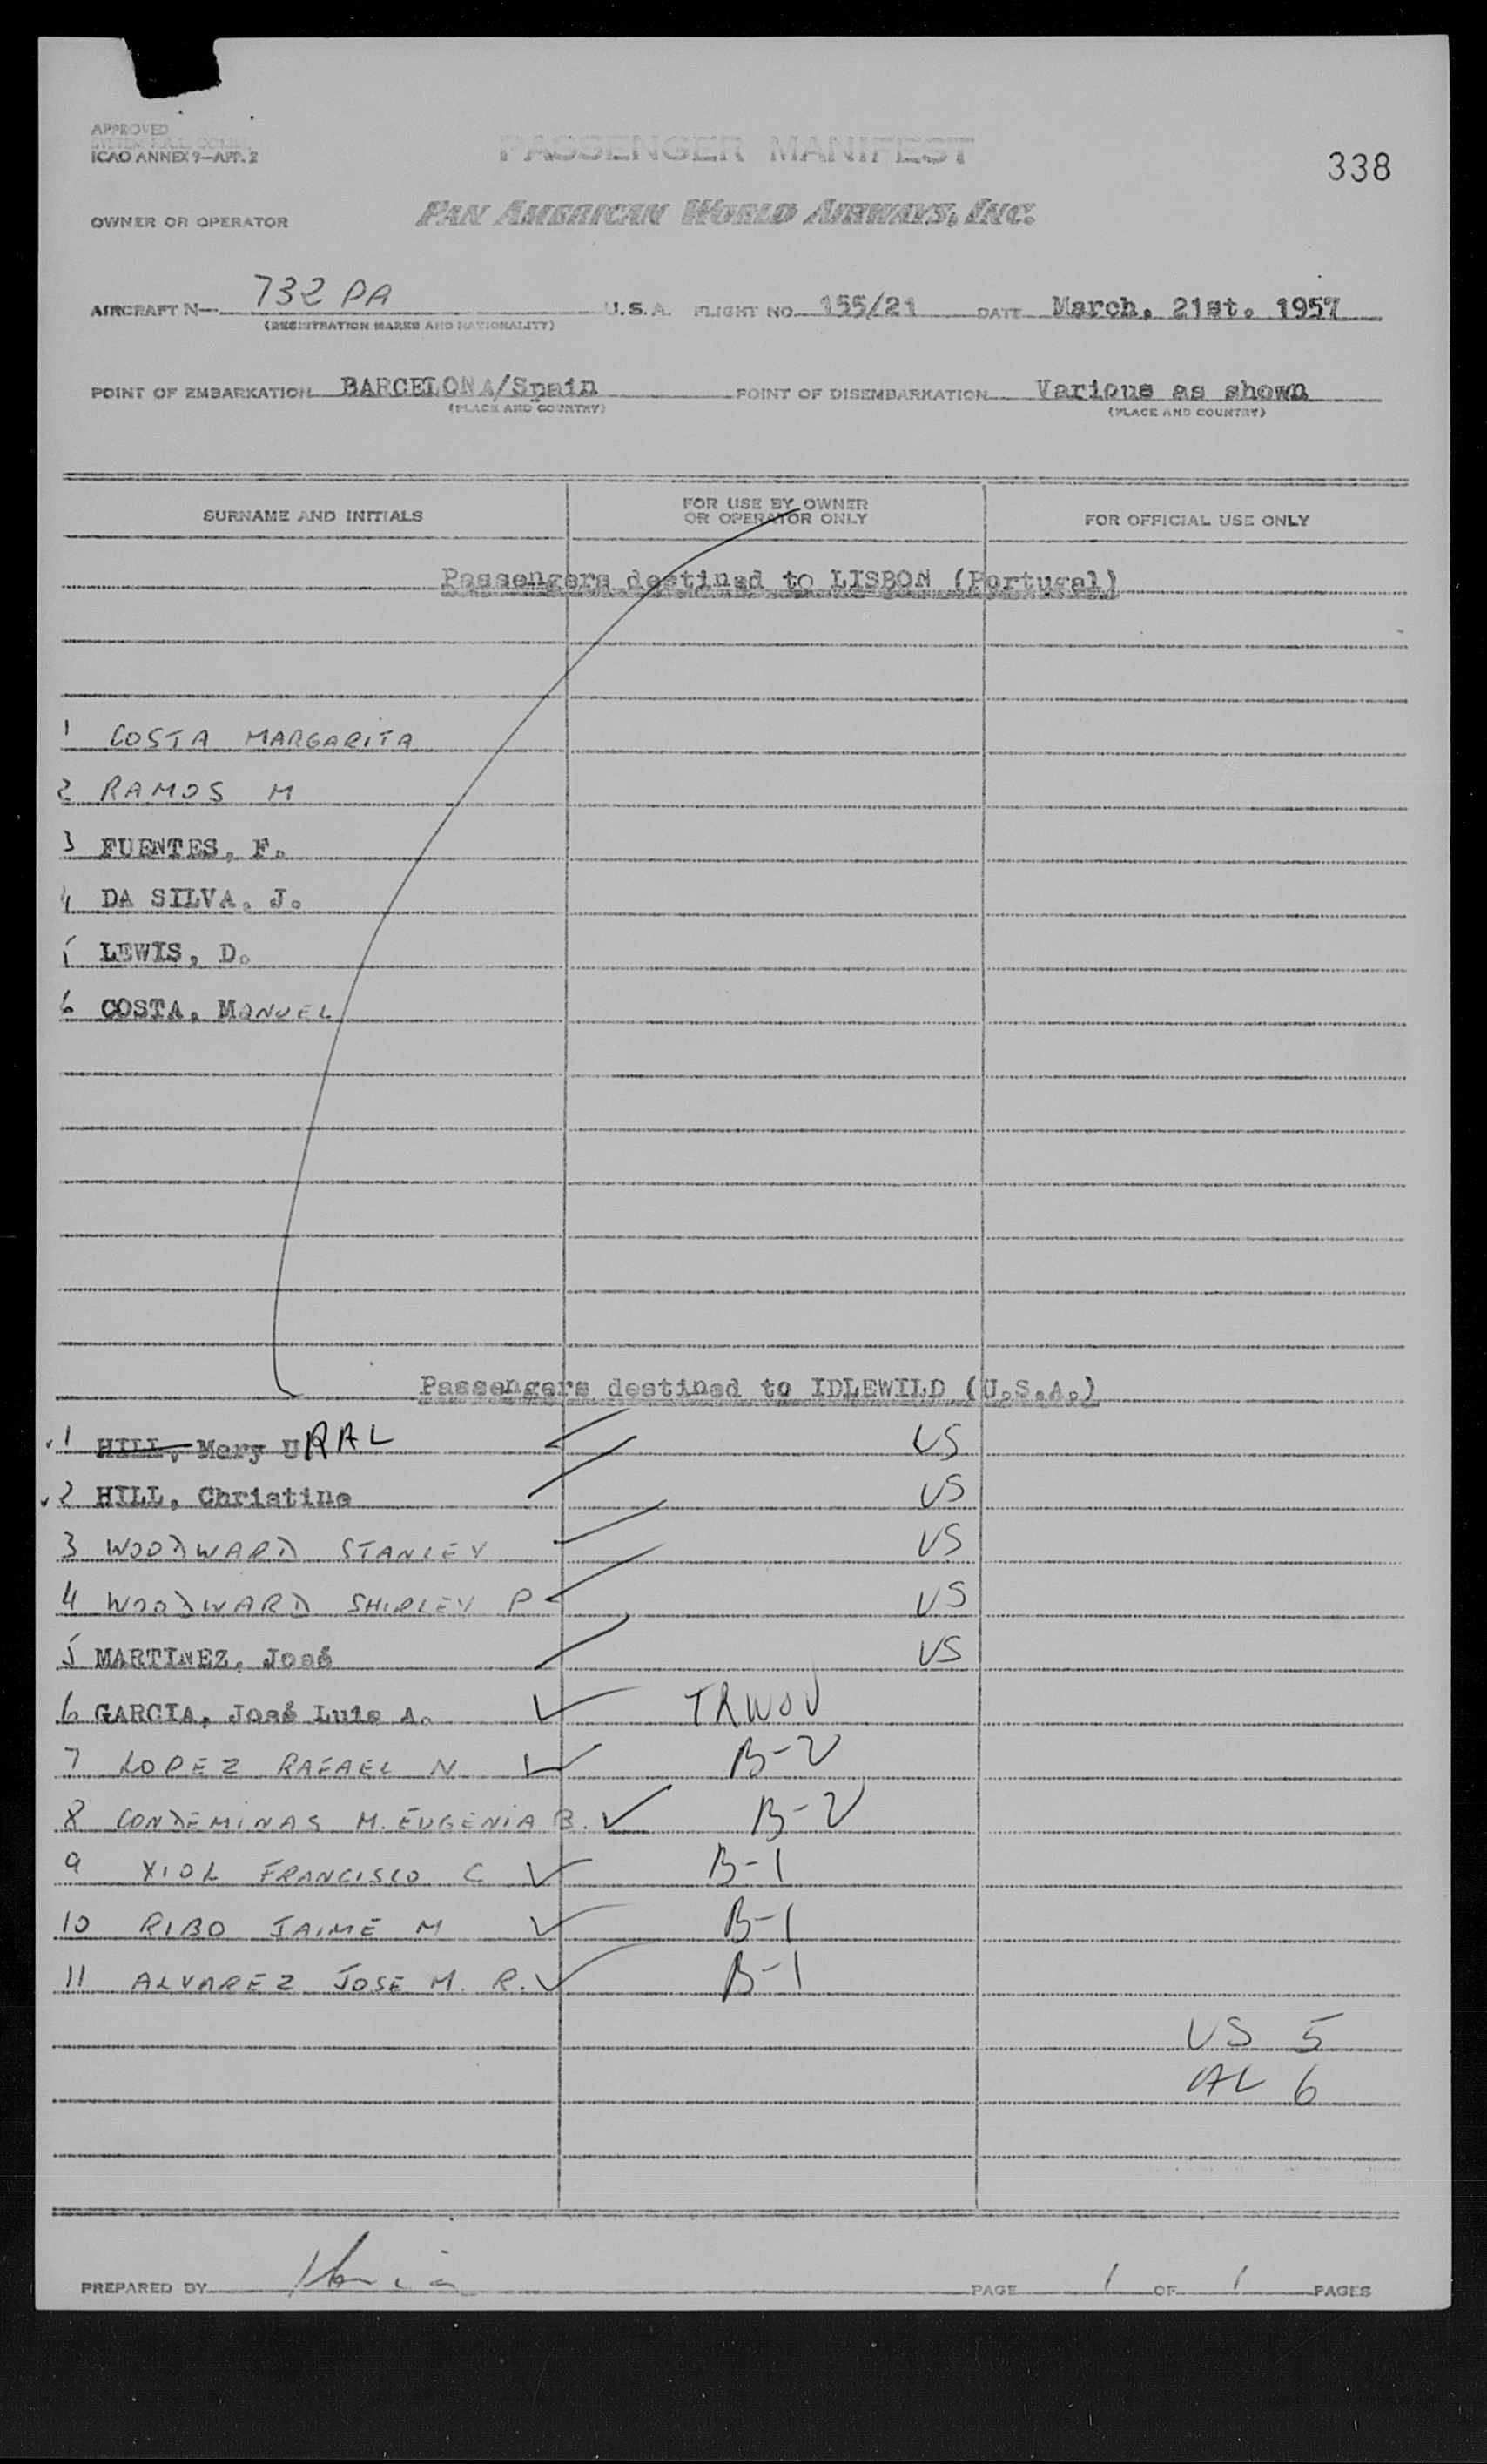 APPROVED
ICAO ANNEX 9—APP. 2
PASSENGER MANIFEST
338
OWNER OR OPERATOR PAN AMERICAN WORLD AIRWAYS, INC.
AIRCRAFT N— 732 PA U.S.A. FLIGHT NO. 155/21 DATE March, 21st. 1957
(REGISTRATION MARKS AND NATIONALITY)
POINT OF EMBARKATION BARCELONA/Spain POINT OF DISEMBARKATION Various as shown
(PLACE AND COUNTRY) (PLACE AND COUNTRY)
SURNAME AND INITIALS FOR USE BY OWNER OR OPERATOR ONLY FOR OFFICIAL USE ONLY
Passengers destined to LISBON (Portugal)
1 COSTA MARGARITA
2 RAMOS M
3 FUENTES, F.
4 DA SILVA, J.
5 LEWIS, D.
6 COSTA, MANUEL
Passengers destined to IDLEWILD (U.S.A.)
1 HILL, Mary URAL US
2 HILL, Christine US
3 WOODWARD STANLEY US
4 WOODWARD SHIRLEY P US
5 MARTINEZ, José US
6 GARCIA, José Luis A. TRWOV
7 LOPEZ RAFAEL N B-2
8 CONDEMINAS M. EUGENIA B. B-2
9 XIOL FRANCISCO C B-1
10 RIBO JAIME M B-1
11 ALVAREZ JOSE M. R. B-1
US 5
AL 6
PREPARED BY PAGE 1 OF 1 PAGES